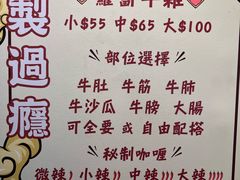 蘿蔔牛雜
小$55 中$65 大$100
部位選擇
牛肚 牛筋 牛肺
牛沙瓜 牛膀 大腸
可全要 或 自由配搭
秘制咖喱
微辣 小辣 中辣 大辣
製過癮